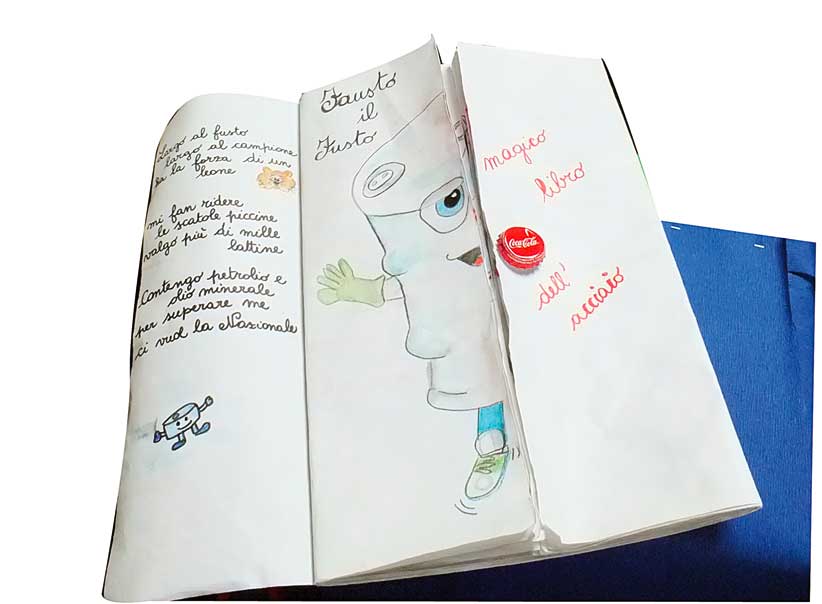 Largo al fusto
largo al campione
ha la forza di un
leone
mi fan ridere
le scatole piccine
valgo più di mille
lattine
Contengo petrolio e
olio minerale
per superare me
ci vuol la Nazionale
Fausto
il
Fusto
magico
libro
Coca-Cola
dell'
acciaio